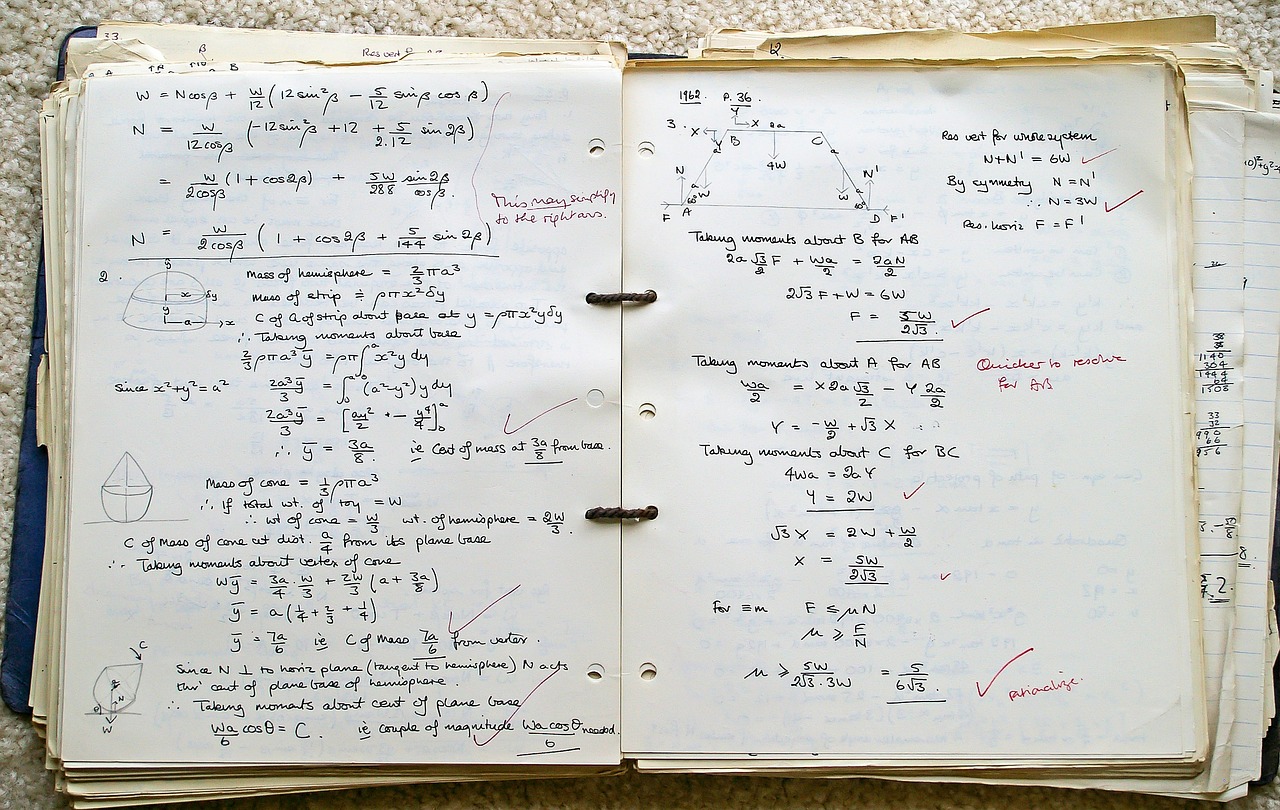 33.
β
Res vert
B
W = Ncosβ + W/12 (12sin²β − 5/12 sinβ cosβ)
N = W/12cosβ (−12sin²β + 12 + 5/2.12 sin2β)
= W/2cosβ (1 + cos2β) + 5W/288 sin2β/cosβ.
This may simplify
to the right ans.
N = W/2cosβ (1 + cos2β + 5/144 sin2β)
2.
y
x δy
y
a x
Mass of hemisphere = 2/3 πa³
Mass of strip ≑ ρπx²δy
C of G of strip about base at y = ρπx²yδy
∴ Taking moments about base
2/3 ρπa³ȳ = ρπ∫₀ᵃ x²y dy
Since x²+y²=a² 2a³ȳ/3 = ∫₀ᵃ (a²−y²)y dy
2a³ȳ/3 = [ay²/2 − y⁴/4]₀ᵃ
∴ ȳ = 3a/8 ie Cent of mass at 3a/8 from base.
Mass of cone = 1/3 ρπa³
∴ If total wt. of toy = W
∴ wt of cone = W/3 wt. of hemisphere = 2W/3.
C of Mass of cone at dist. a/4 from its plane base
∴ Taking moments about vertex of cone
Wȳ = 3a/4 · W/3 + 2W/3 (a + 3a/8)
ȳ = a(1/4 + 2/3 + 1/4)
ȳ = 7a/6 ie C of Mass 7a/6 from vertex.
C
θ N
W
Since N ⊥ to horiz plane (tangent to hemisphere) N acts
thro' cent of plane base of hemisphere.
∴ Taking moments about cent of plane base
Wa/6 cosθ = C. ie couple of magnitude Wa cosθ/6 needed.
12.
1962. P. 36.
Y
3. X X 2a
B C
Y a a
4W
N N'
a W W a
60° 60°
F A D F'
Res vert for whole system
N+N' = 6W
By symmetry N = N'
∴ N = 3W
Res. horiz F = F'
Taking moments about B for AB
2a √3/2 F + Wa/2 = 2aN/2
2√3 F + W = 6W
F = 5W/2√3.
Taking moments about A for AB
Quicker to resolve
for AB
Wa/2 = X 2a √3/2 − Y 2a/2
Y = −W/2 + √3 X
Taking moments about C for BC
4Wa = 2aY
Y = 2W
√3 X = 2W + W/2
X = 5W/2√3
For ≡m F ≤ μN
μ ≥ F/N
μ ≥ 5W/2√3.3W = 5/6√3.
rationalize.
38
38
1140
304
1444
64
1508
33
32
990
66
956